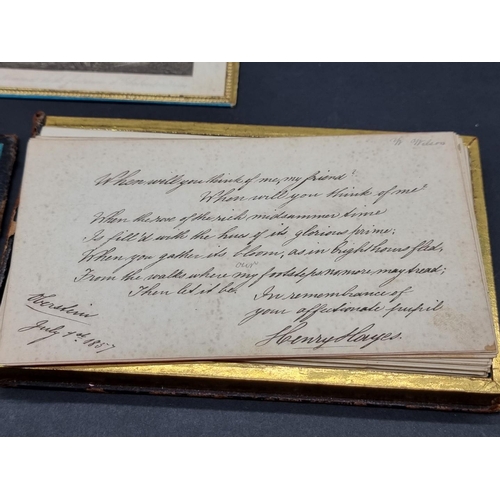 When will you think of me, my friend?
When will you think of me?
When the rose of the rich, midsummer time
Is fill'd with the hues of its glorious prime;
When you gather its bloom, as in bright hours fled,
our
From the walks where my footsteps no more may tread;
Then let it be.
In remembrance of
your affectionate pupil
Henry Hayes.
July 9th 1857